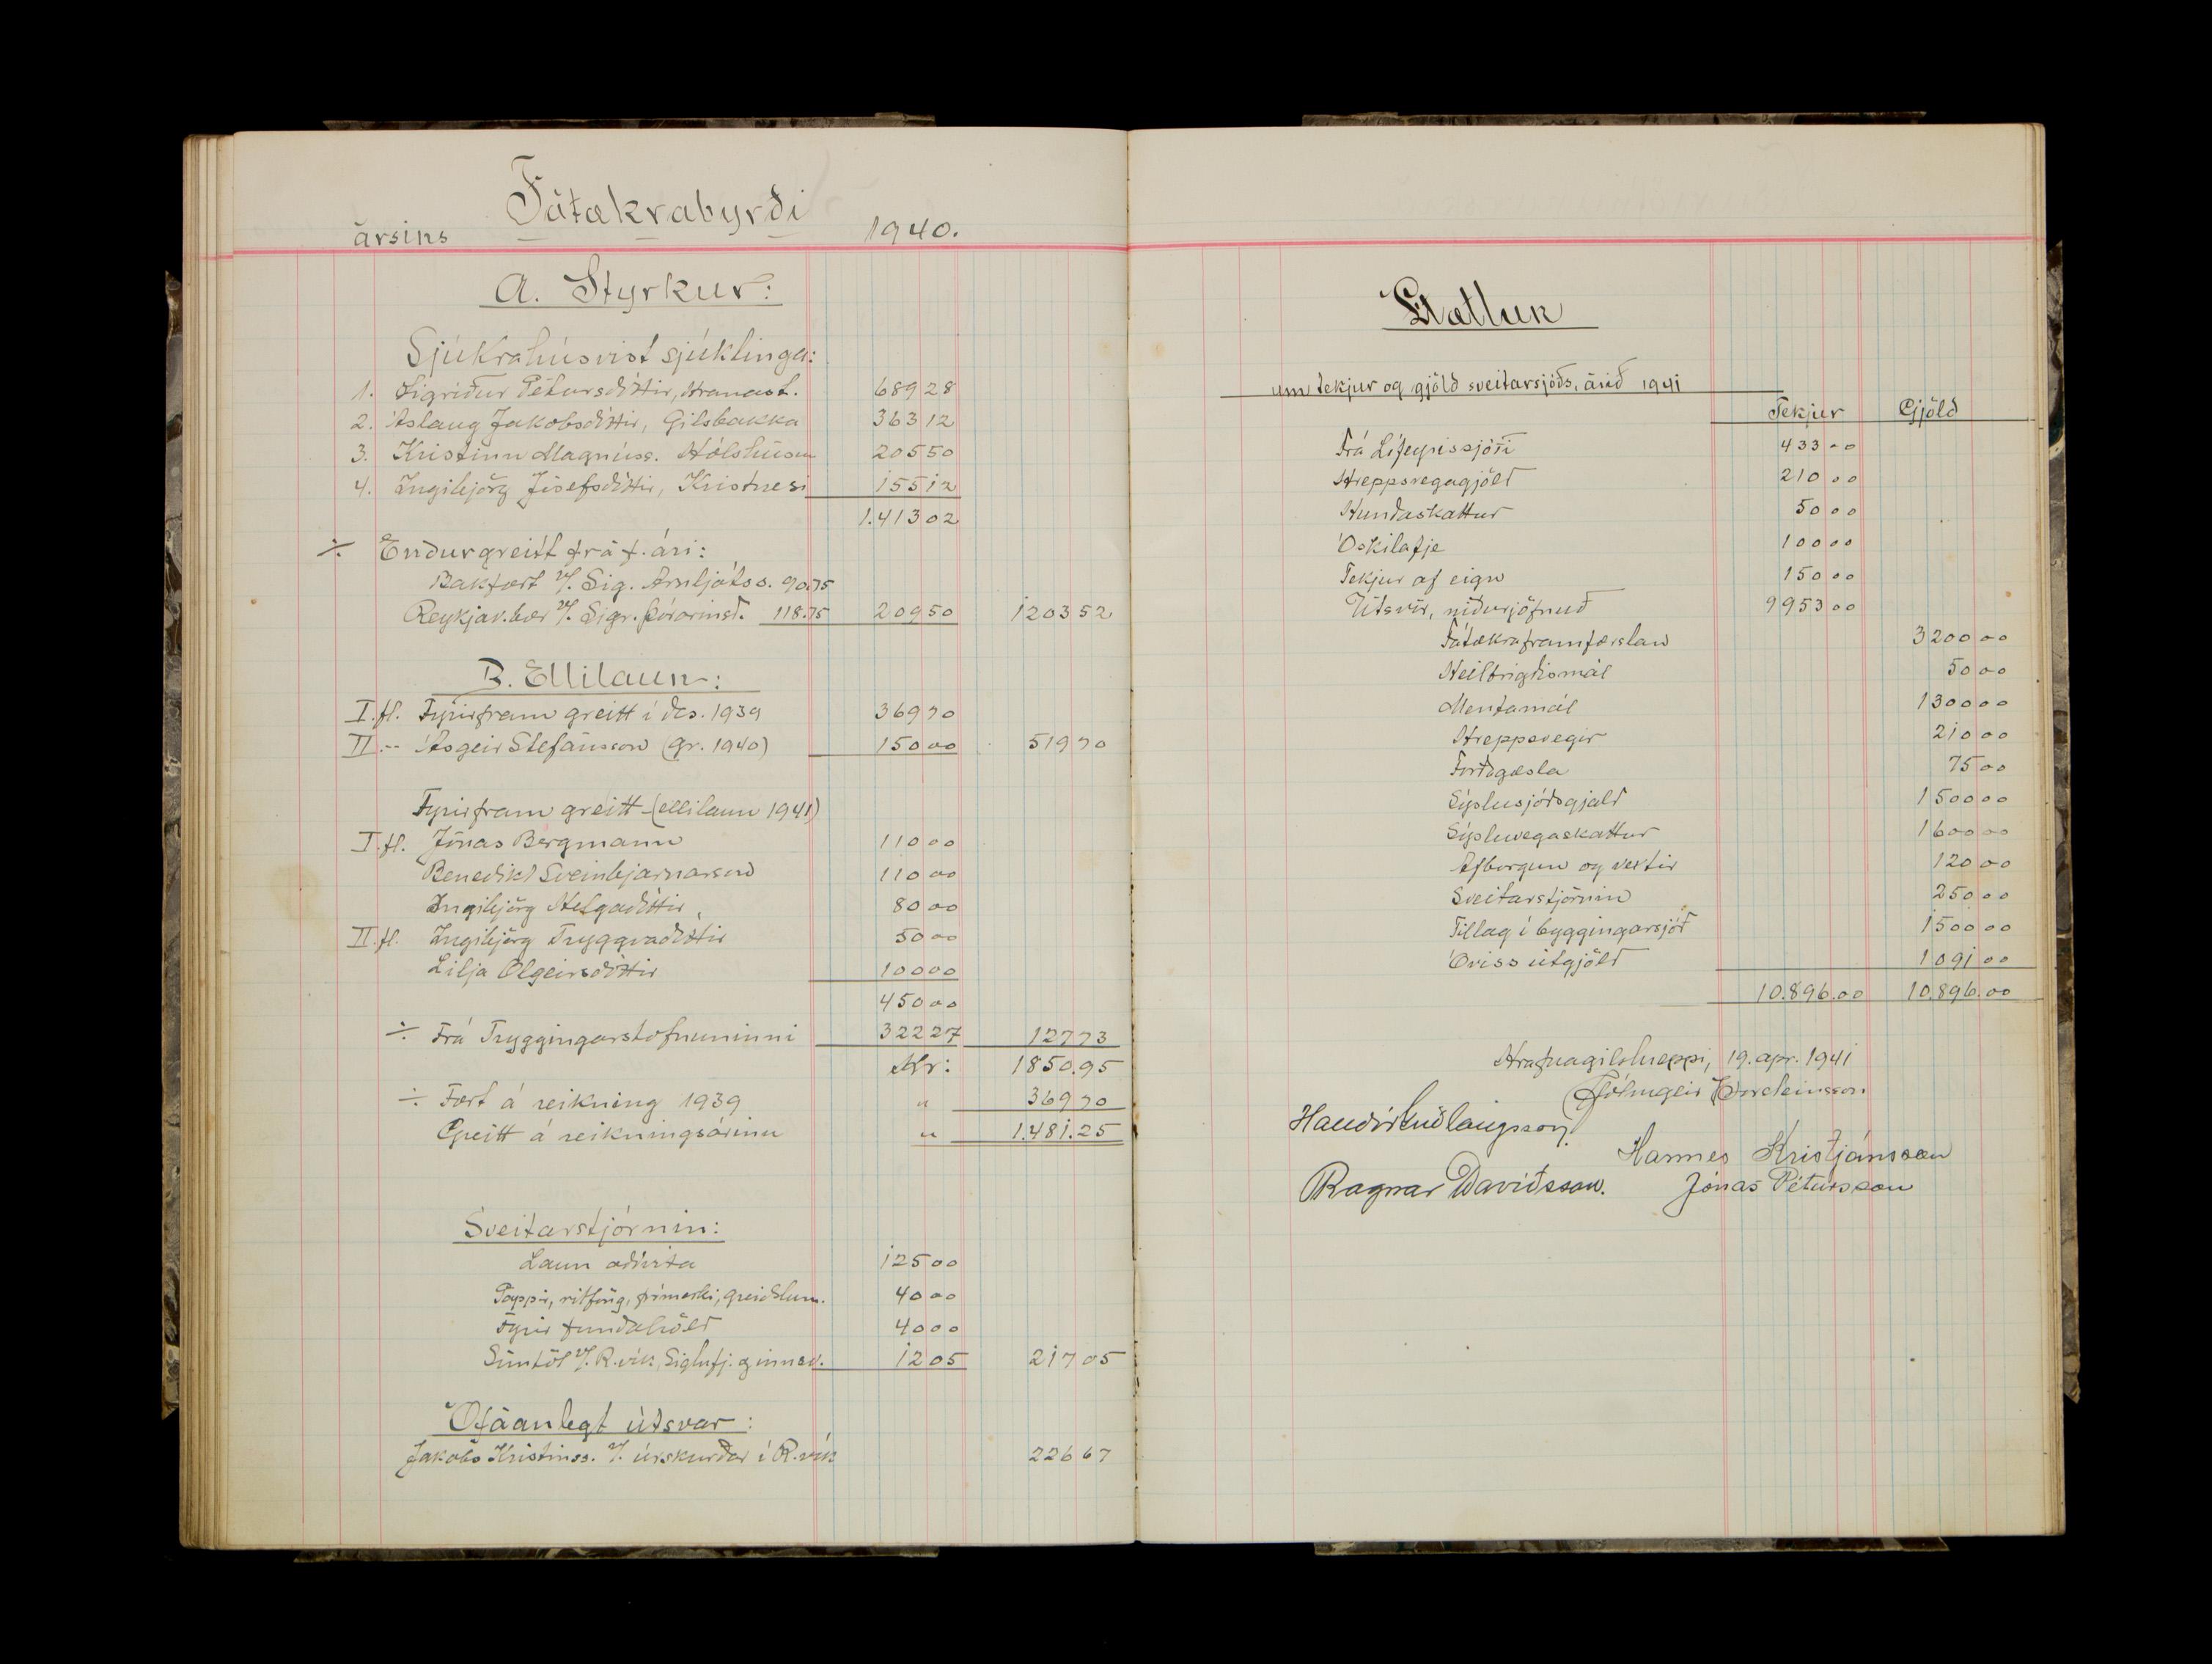 Fátækrabyrði
ársins 1940.
A. Styrkur:
Sjúkrahúsvist sjúklinga:
1. Sigríður Pétursdóttir, Hranast. 689 28
2. Áslaug Jakobsdóttir, Gilsbakka 363 12
3. Kristinn Magnúss. Hólshúsum 205 50
4. Ingibjörg Jósefsdóttir, Kristnesi 155 12
1.413 02
÷ Endurgreitt frá f. ári:
Bakfært v/. Sig. Arnljótss. 90.75
Reykjav.bær v/. Sigr. Þórarinsd. 118.75 209 50 1203 52
B. Ellilaun:
I. fl. Fyrirfram greitt í des. 1939 369 70
II -- Ásgeir Stefánsson (gr. 1940) 150 00 519 70
Fyrirfram greitt - (ellilaun 1941)
I. fl. Jónas Bergmann 110 00
Benedikt Sveinbjarnarson 110 00
Ingibjörg Helgadóttir 80 00
II. fl. Ingibjörg Tryggvadóttir 50 00
Lilja Olgeirsdóttir 100 00
450 00
÷ Frá Tryggingarstofnuninni 322 27 127 73
Kr: 1850.95
÷ Fært á reikning 1939 " 369 70
Greitt á reikningsárinu " 1.481.25
Sveitarstjórnin:
Laun oddvita 125 00
Pappír, ritföng, frímerki, greiðslum. 40 00
Fyrir fundahöld 40 00
Símtöl v/. R.vík, Siglufj. og innsv. 12 05 217 05
Ófáanlegt útsvar:
Jakobs Kristinss. v/. úrskurðar í R.vík 226 67
Áætlun
um tekjur og gjöld sveitarsjóðs, árið 1941
Tekjur Gjöld
Frá Lífeyrissjóði 433 00
Hreppsvegagjöld 210 00
Hundaskattur 50 00
Óskilafje 100 00
Tekjur af eign 150 00
Útsvör, niðurjöfnuð 9953 00
Fátækraframfærslan 3200 00
Heilbrigðismál 50 00
Mentamál 1300 00
Hreppsvegir 210 00
Forðagæsla 75 00
Sýslusjóðsgjald 1500 00
Sýsluvegaskattur 1600 00
Afborgun og vextir 120 00
Sveitarstjórnin 250 00
Tillag í byggingarsjóð 1500 00
Óviss útgjöld 1091 00
10.896.00 10.896.00
Hrafnagilshreppi, 19. apr. 1941
Hólmgeir Þorsteinsson
Halldór Guðlaugsson
Hannes Kristjánsson
Ragnar Davíðsson. Jónas Pétursson